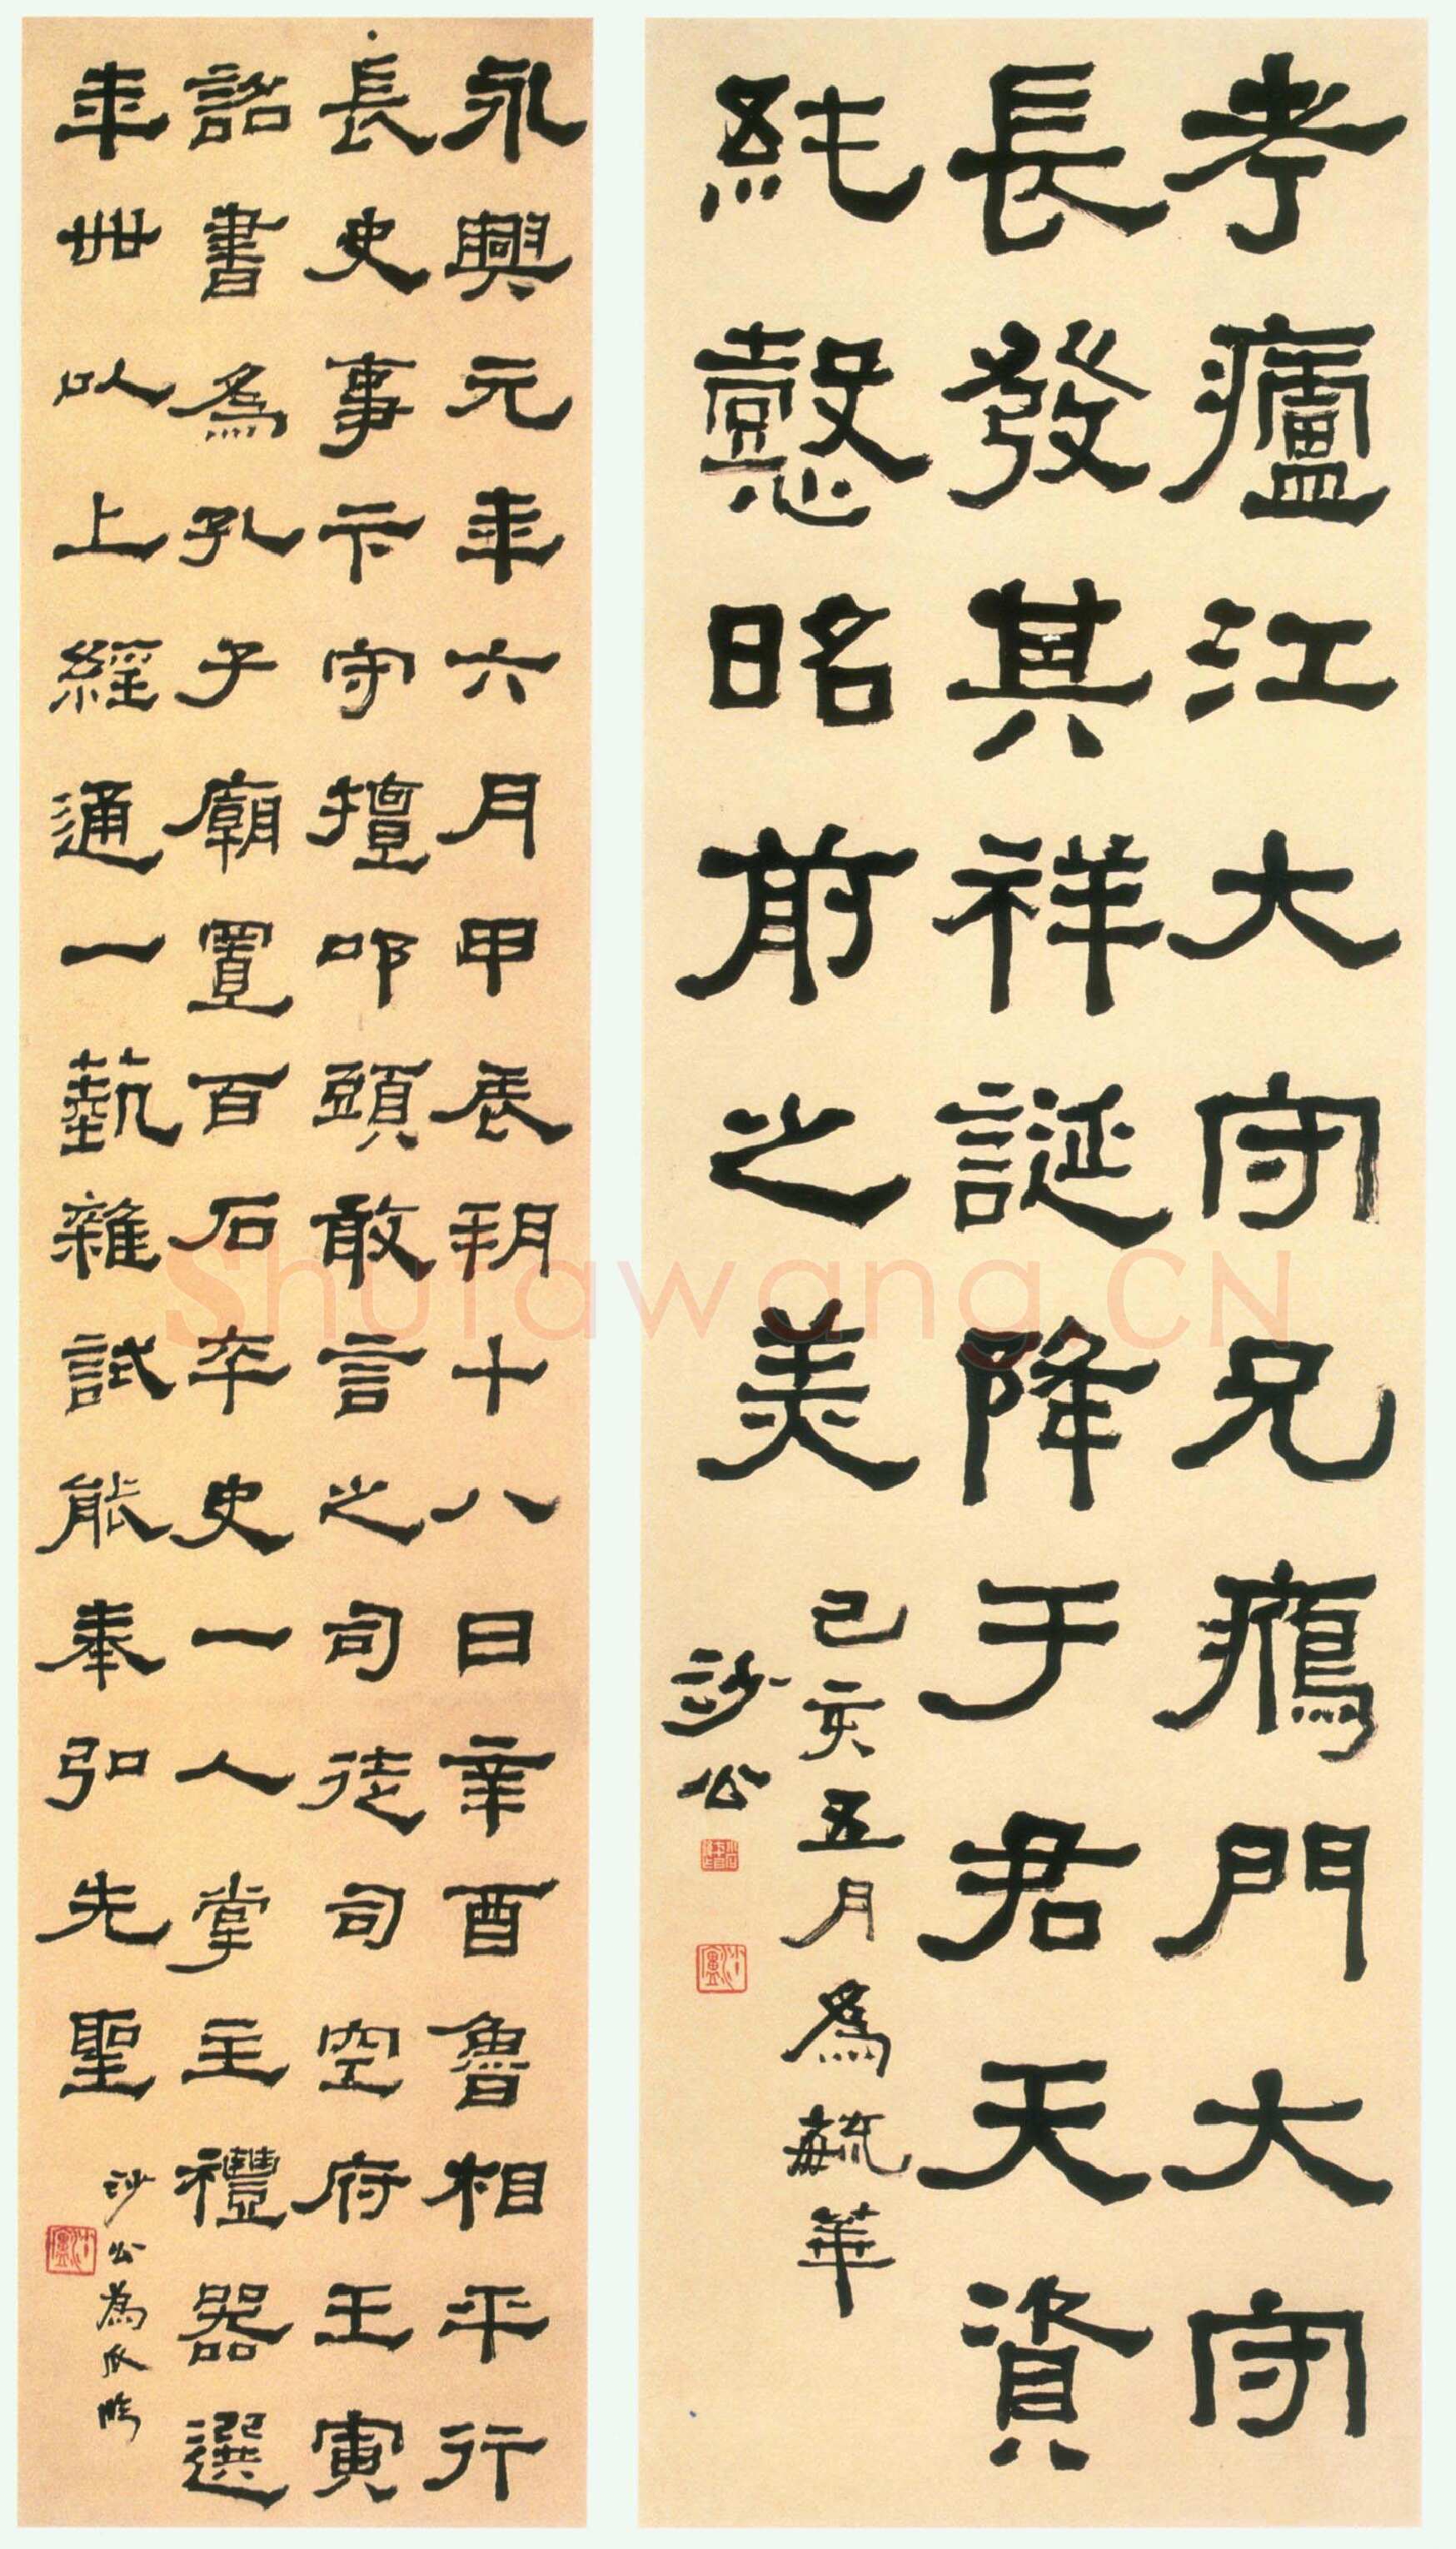 考廬江大守兄鴈門大守
長發其祥誕降于君天資
純懿昭前之美
己亥五月為毓華
沙公
永興元年六月甲辰朔十八日辛酉魯相平行
長史事卞守擅叩頭敢言之司徒司空府壬寅
詔書為孔子廟置百石卒史一人掌主禮器選
年卌以上經通一藝雜試能奉弘先聖
沙公為臨
Shufawang.CN